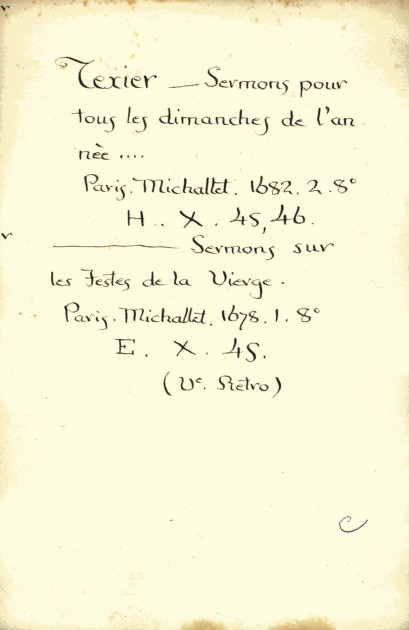 Texier — Sermons pour
tous les dimanches de l'an
née ....
Paris. Michallet. 1682. 2. 8°
H. X. 45, 46.
——— Sermons sur
les Festes de la Vierge.
Paris. Michallet. 1678. 1. 8°
E. X. 45.
(Ve. Rétro)
C